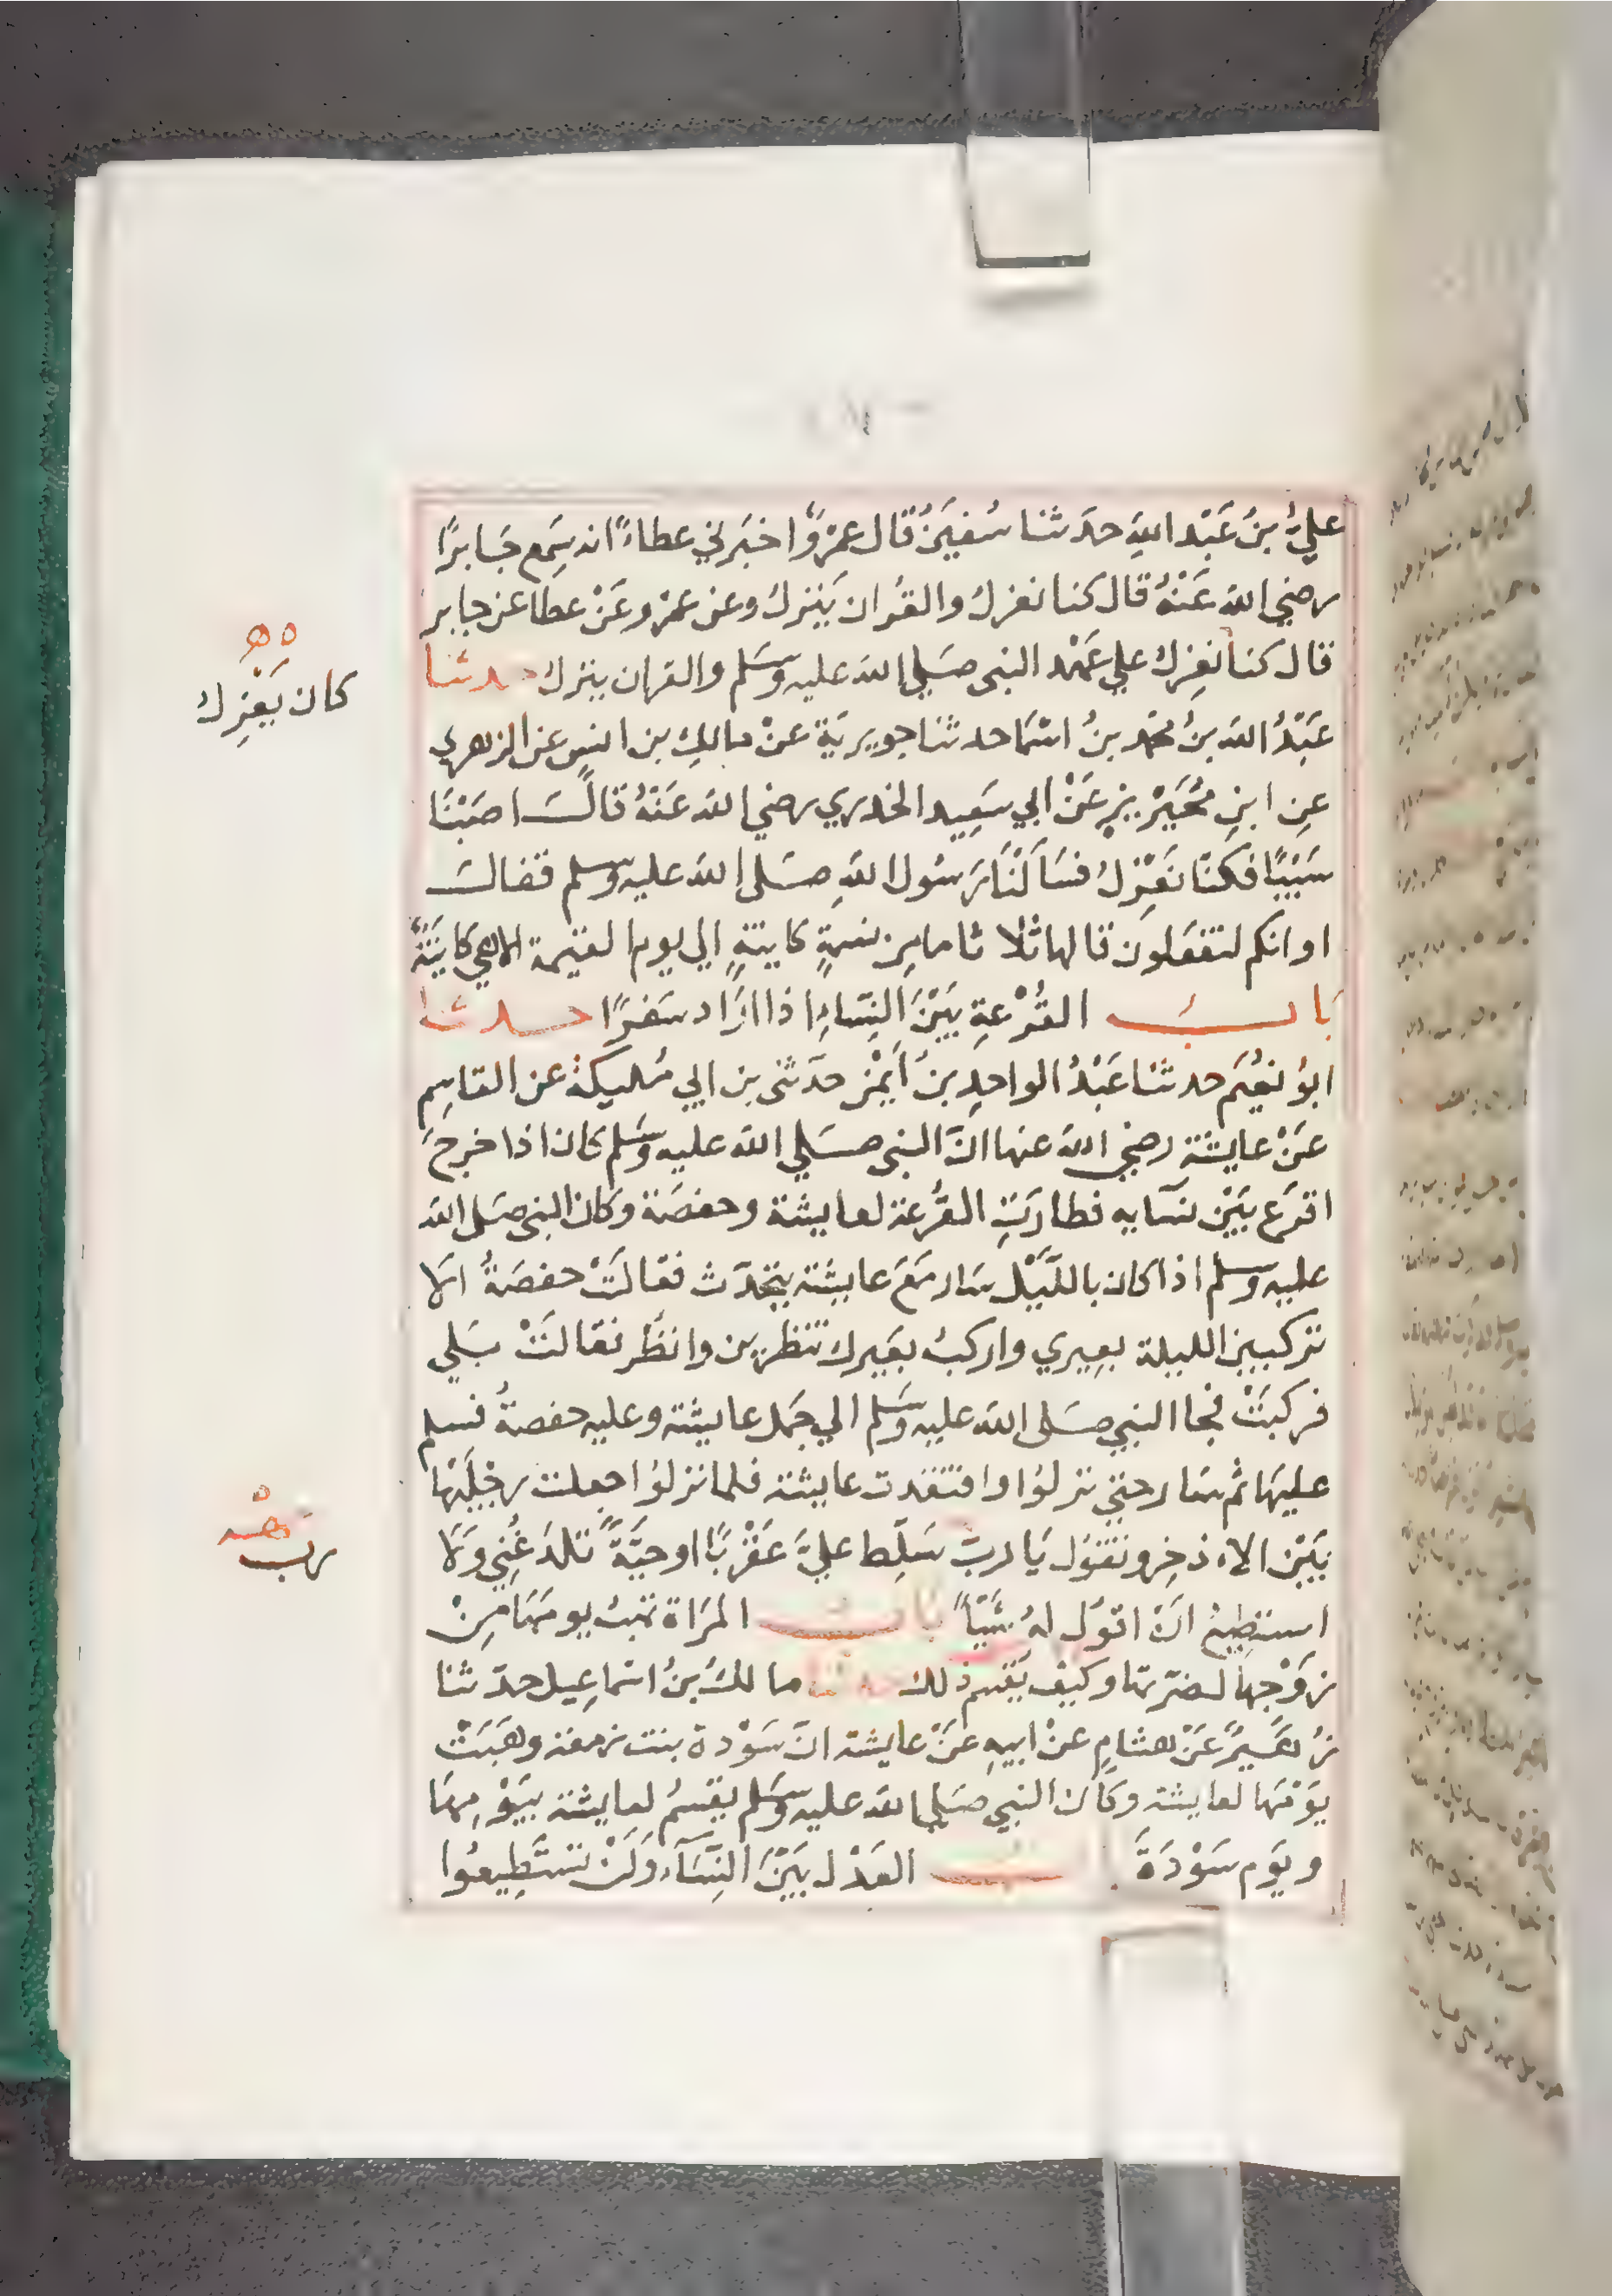 عليُّ بنُ عَبْد اللهِ حدَثنا سُفيَنُ قال عمرٌو اخبَرَني عطاءً انه سِمَع جَابرًا
رضي الله عَنْهُ قال كنا نعزل والقُران يَنزلُ وعن عمرو عَنْ عطا عن جابر
قال كنا نعزِل علي عَهْد النبي صَلي الله عليه وسَلم والقران ينزل حدثنا
عَبْدُ الله بنُ محمد بنُ اسْمَا حدثنا جويرية عنْ مالِكِ بن انسٍ عن الزهري
عِن ابنِ مُحَيْريزٍ عَنْ ابي سَعِيد الخدري رضي الله عَنهُ قالَ اصَبْنَا
سَبْيًا فكنّا نَعْزِلُ فسَألْنَا رَسُول اللهِ صَلى الله عليه وسلم فقال
اوانكم لتفعَلون قالها ثلاثا ما مِن نسَمةٍ كاينةٍ الي يوم القيمة الا هي كاينَةٌ
بَابُ القُرْعةِ بَيْنَ النِسَاءِ اذا ارَاد سَفرًا حدثنا
ابوُ نعُيَم حدثنا عَبْدُ الواحِدِ بنُ أيمْن حدَثني بن ابي مُليكةُ عن القاسِمِ
عَنْ عايشة رضي الله عنها انّ النبي صَلي الله عليه وسَلم كان اذا خرجَ
اقرَع بَيْن نسَآيه فطارَتِ القُرعة لعايشة وحفصَة وكان النبي صَلى الله
عليه وسَلم اذا كان باللَيْل سَار مَعَ عايشة يتحَدّث فقالَتْ حفصَةُ الَا
تركبين الليلة بعِيري واركبُ بعَيرك تنظرين وانظُر فقالتْ بَلي
فركبَتْ فجا النبي صَلى الله عليه وسَلم الي جَمل عايشة وعليه حفصةُ فسلم
عليهَا ثم سَار حتي نزلوُا وافتقدت عايشة فلما نزلوُا جعلت رجْليَهْا
بَيْن الاذخِر وتقوُل يَا ربّ سَلِّط عليَّ عَقْربًا اوحيَّةً تلدَغُنِي ولَا
استطِيعُ انْ اقوُل لهُ شَيًا بَابُ المرَاة تهبُ يومهَا مِنْ
زوْجها لضرّتها وكيْف يَقسِم ذلك حدثنا مالكُ بنُ اسْماعِيل حدّثنا
زُهَيرٌ عَنْ هشامٍ عنْ ابيهِ عَنْ عايشة انّ سَوْدة بنت زمعة وهَبَتْ
يوَمَها لعايشة وكان النبي صَلي الله عليه وسَلم يقسِمُ لعايشة بيَوْمِهَا
ويوَم سَوْدَةَ بابُ العَدْل بَيْنَ النِسَآءِ وَلَنْ تَسْتَطِيعُوا
كان يَعْزِل
رب